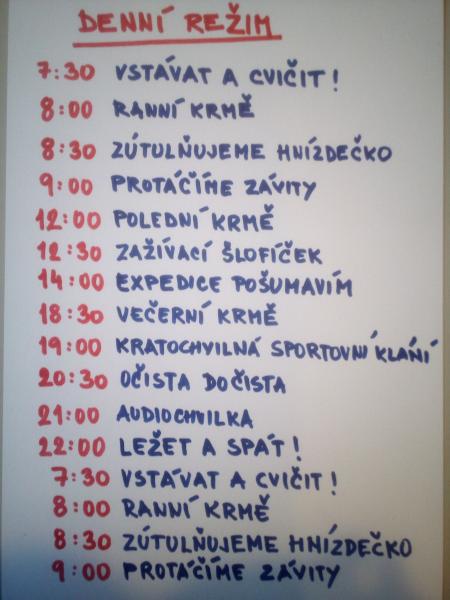 DENNÍ REŽIM
7:30 VSTÁVAT A CVIČIT!
8:00 RANNÍ KRMĚ
8:30 ZÚTULŇUJEME HNÍZDEČKO
9:00 PROTÁČÍME ZÁVITY
12:00 POLEDNÍ KRMĚ
12:30 ZAŽÍVACÍ ŠLOFÍČEK
14:00 EXPEDICE POŠUMAVÍM
18:30 VEČERNÍ KRMĚ
19:00 KRATOCHVILNÁ SPORTOVNÍ KLÁNÍ
20:30 OČISTA DOČISTA
21:00 AUDIOCHVILKA
22:00 LEŽET A SPÁT!
7:30 VSTÁVAT A CVIČIT!
8:00 RANNÍ KRMĚ
8:30 ZÚTULŇUJEME HNÍZDEČKO
9:00 PROTÁČÍME ZÁVITY